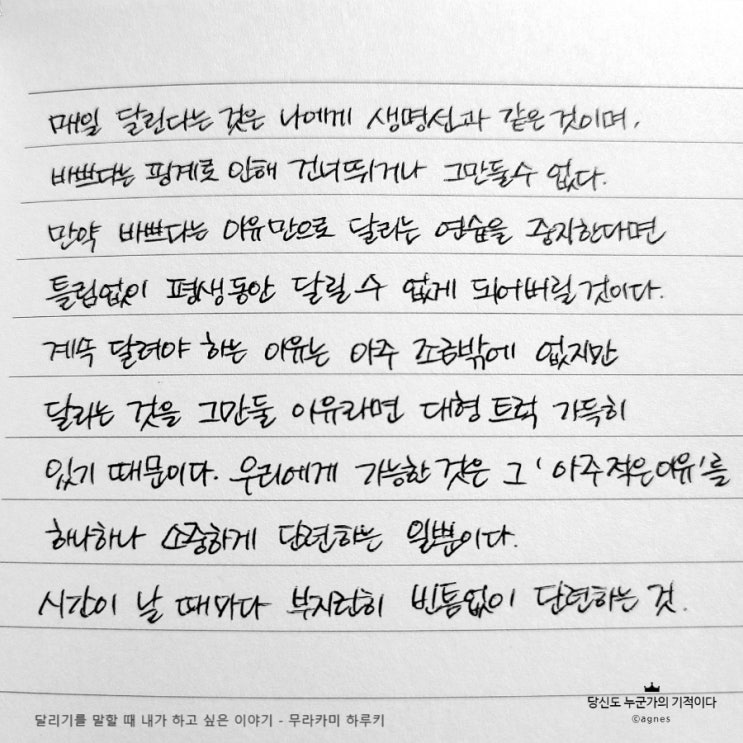 매일 달린다는 것은 나에게 생명선과 같은 것이며,
바쁘다는 핑계로 인해 건너뛰거나 그만둘수 없다.
만약 바쁘다는 이유만으로 달리는 연습을 중지한다면
틀림없이 평생동안 달릴 수 없게 되어버릴것이다.
계속 달려야 하는 이유는 아주 조금밖에 없지만
달리는 것을 그만둘 이유라면 대형트럭 가득히
있기 때문이다. 우리에게 가능한 것은 그 '아주적은이유'를
하나하나 소중하게 단련하는 일뿐이다.
시간이 날 때마다 부지런히 빈틈없이 단련하는 것.
당신도 누군가의 기적이다
달리기를 말할 때 내가 하고 싶은 이야기 - 무라카미 하루키
©agnes